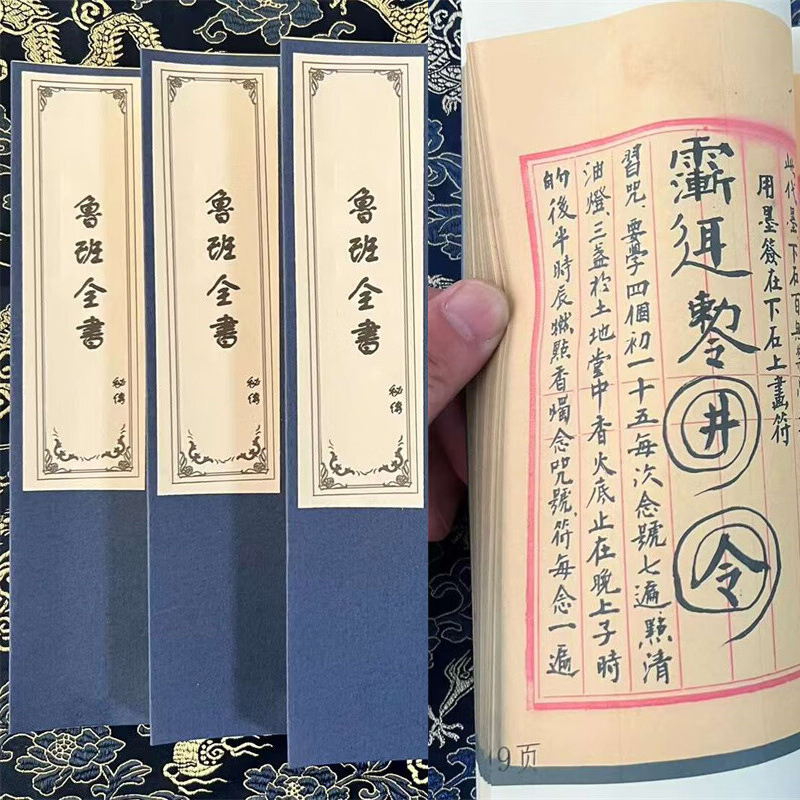 魯班全書
秘傳
魯班全書
秘傳
魯班全書
秘傳
代墨下石百
用墨簽在下石上畫符
井
令
習咒、要學四個初一十五每次念號七遍點清
油燈、三盞於土地堂中香火底止在晚上子時
的後半時辰點香燭念咒號、符每念一遍
19页